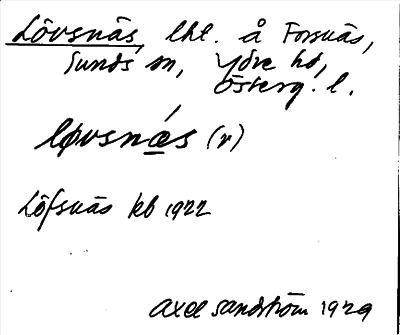 Lövsnäs, lht. å Forsnäs,
Sunds sn, Ydre hd,
Österg. l.
løvsnǽs (r)
Löfsnäs kb 1922
Axel Sandström 1929